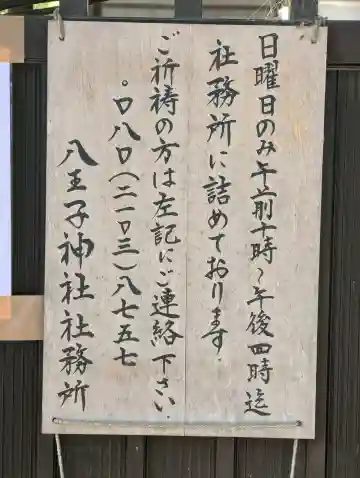 日曜日のみ午前十時〜午後四時迄
社務所に詰めております。
ご祈祷の方は左記にご連絡下さい。
〇八〇(二一〇三)八七五七
八王子神社社務所